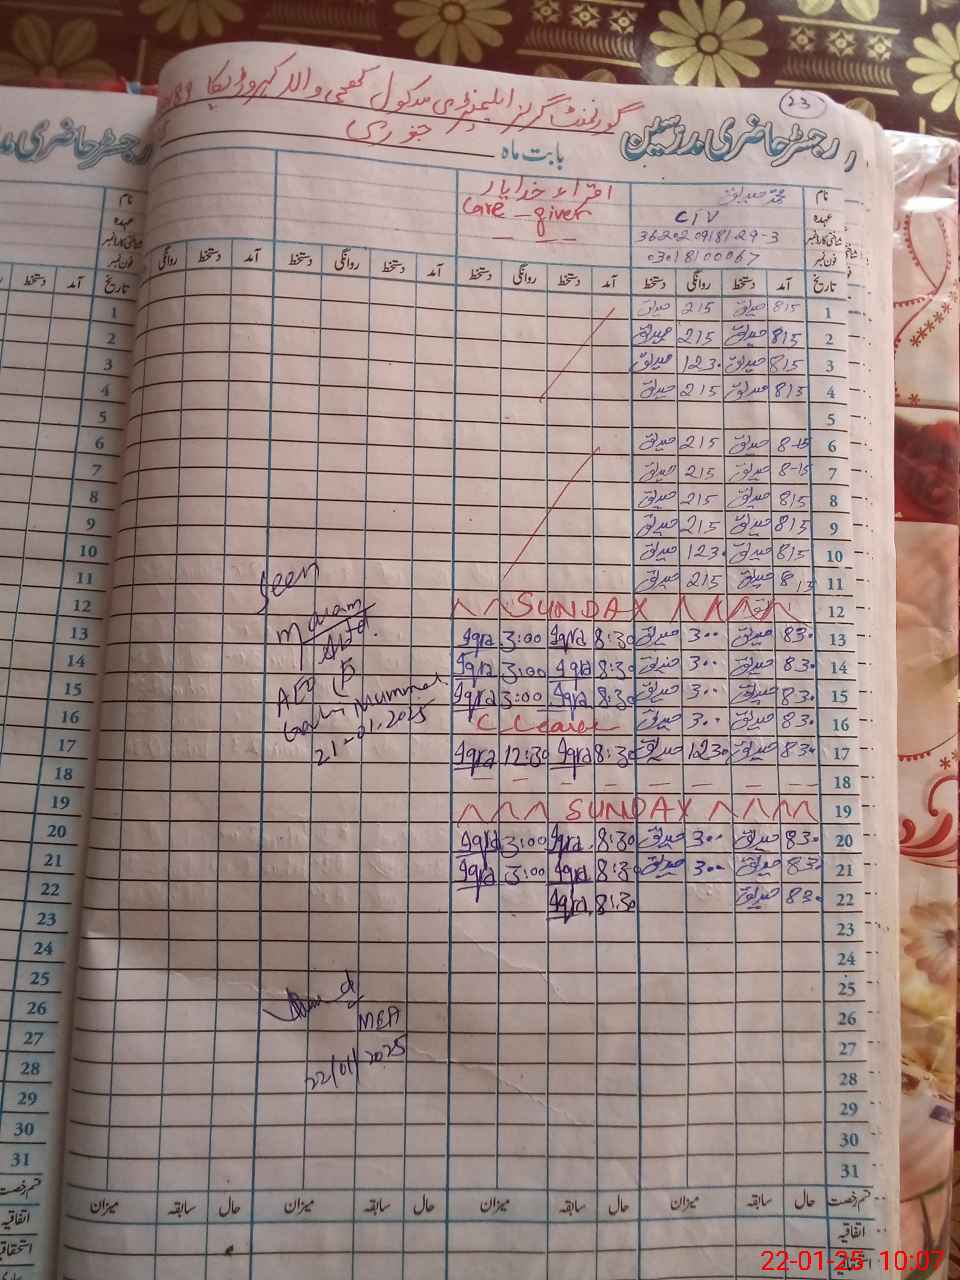 23
گورنمنٹ گرلز ایلیمنٹری سکول
رجسٹر حاضری مدرسین
بابت ماہ جنوری
نام محمد صدیق اقراء خدا یار
عہدہ CIV Care-giver
شناختی کارڈ نمبر 36202-0918129-3
فون نمبر
تاریخ آمد دستخط روانگی دستخط آمد دستخط روانگی دستخط آمد دستخط روانگی دستخط آمد دستخط روانگی
1 815 صدیق 215 صدیق
2 815 صدیق 215 صدیق
3 815 صدیق 1230 صدیق
4 815 صدیق 215 صدیق
5
6 8-15 صدیق 215 صدیق
7 8-15 صدیق 215 صدیق
8 815 صدیق 215 صدیق
9 815 صدیق 215 صدیق
10 815 صدیق 1230 صدیق
11 815 صدیق 215 صدیق
12 SUNDAY
13 830 صدیق 300 صدیق 8:30 Iqra 3:00 Iqra
14 830 صدیق 300 صدیق 8:30 Iqra 3:00 Iqra
15 830 صدیق 300 صدیق 8:30 Iqra 3:00 Iqra
16 830 صدیق 300 صدیق C Leave
17 830 صدیق 1230 صدیق 8:30 Iqra 12:30 Iqra
18
19 SUNDAY
20 830 صدیق 300 صدیق 8:30 Iqra 3:00 Iqra
21 830 صدیق 300 صدیق 8:30 Iqra 3:00 Iqra
22 830 صدیق 8:30 Iqra
23
24
25
26
27
28
29
30
31
Seen
21-01-2025
MEA
22/01/2025
قسم رخصت حال سابقہ میزان حال سابقہ میزان حال سابقہ میزان حال سابقہ میزان
اتفاقیہ
استحقاقیہ
رجسٹر حاضری
آمد دستخط
1
2
3
4
5
6
7
8
9
10
11
12
13
14
15
16
17
18
19
20
21
22
23
24
25
26
27
28
29
30
31
قسم رخصت
اتفاقیہ
استحقاقیہ
22-01-25 10:07